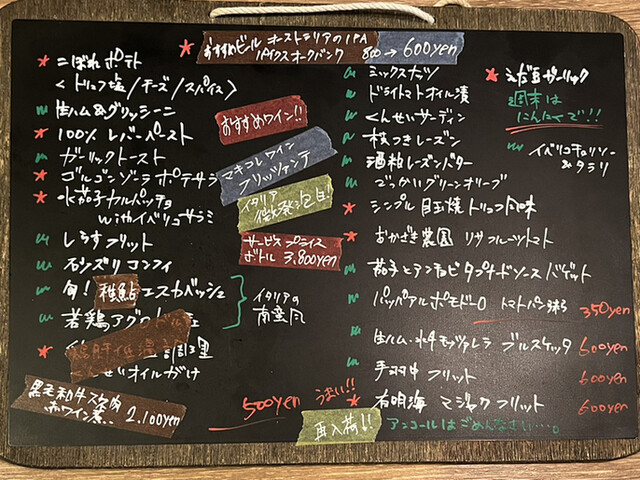 おすすめビール オーストラリアのIPA
800→600yen
こぼれポテト
<トリュフ塩/チーズ/スパイス>
生ハム&グリッシーニ
100% レバーペースト
ガーリックトースト
ゴルゴンゾーラ ポテサラ
水茄子カルパッチョ
withイベリコサラミ
しらすフリット
砂ズリコンフィ
旬! 稚鮎 エスカベッシュ
若鶏アグロ
イタリアの
南蛮風
オイルがけ
黒毛和牛スネ肉
赤ワイン煮.. 2,100yen
500yen
おすすめワイン!!
マキコレワイン
フリッツァンテ
イタリア
微発泡白!
サービスプライス
ボトル 3,800yen
ミックスナッツ
ドライトマトオイル漬
くんせいサーディン
枝つきレーズン
酒粕レーズンバター
でっかいグリーンオリーブ
シンプル 目玉焼 トリュフ風味
おかざき農園 リサフルーツトマト
茄子とアンチョビ タプナードソース バゲット
パッパアルポモドーロ トマトパン粥 350yen
生ハム・水牛モッツァレラ ブルスケッタ 600yen
手羽中 フリット 600yen
うまい!!
有明海 マジャク フリット 600yen
アンコールはごめんなさい…。
再入荷!!
えだ豆ガーリック
週末は
にんにくで!!
イベリコチョリソー
&タラリ